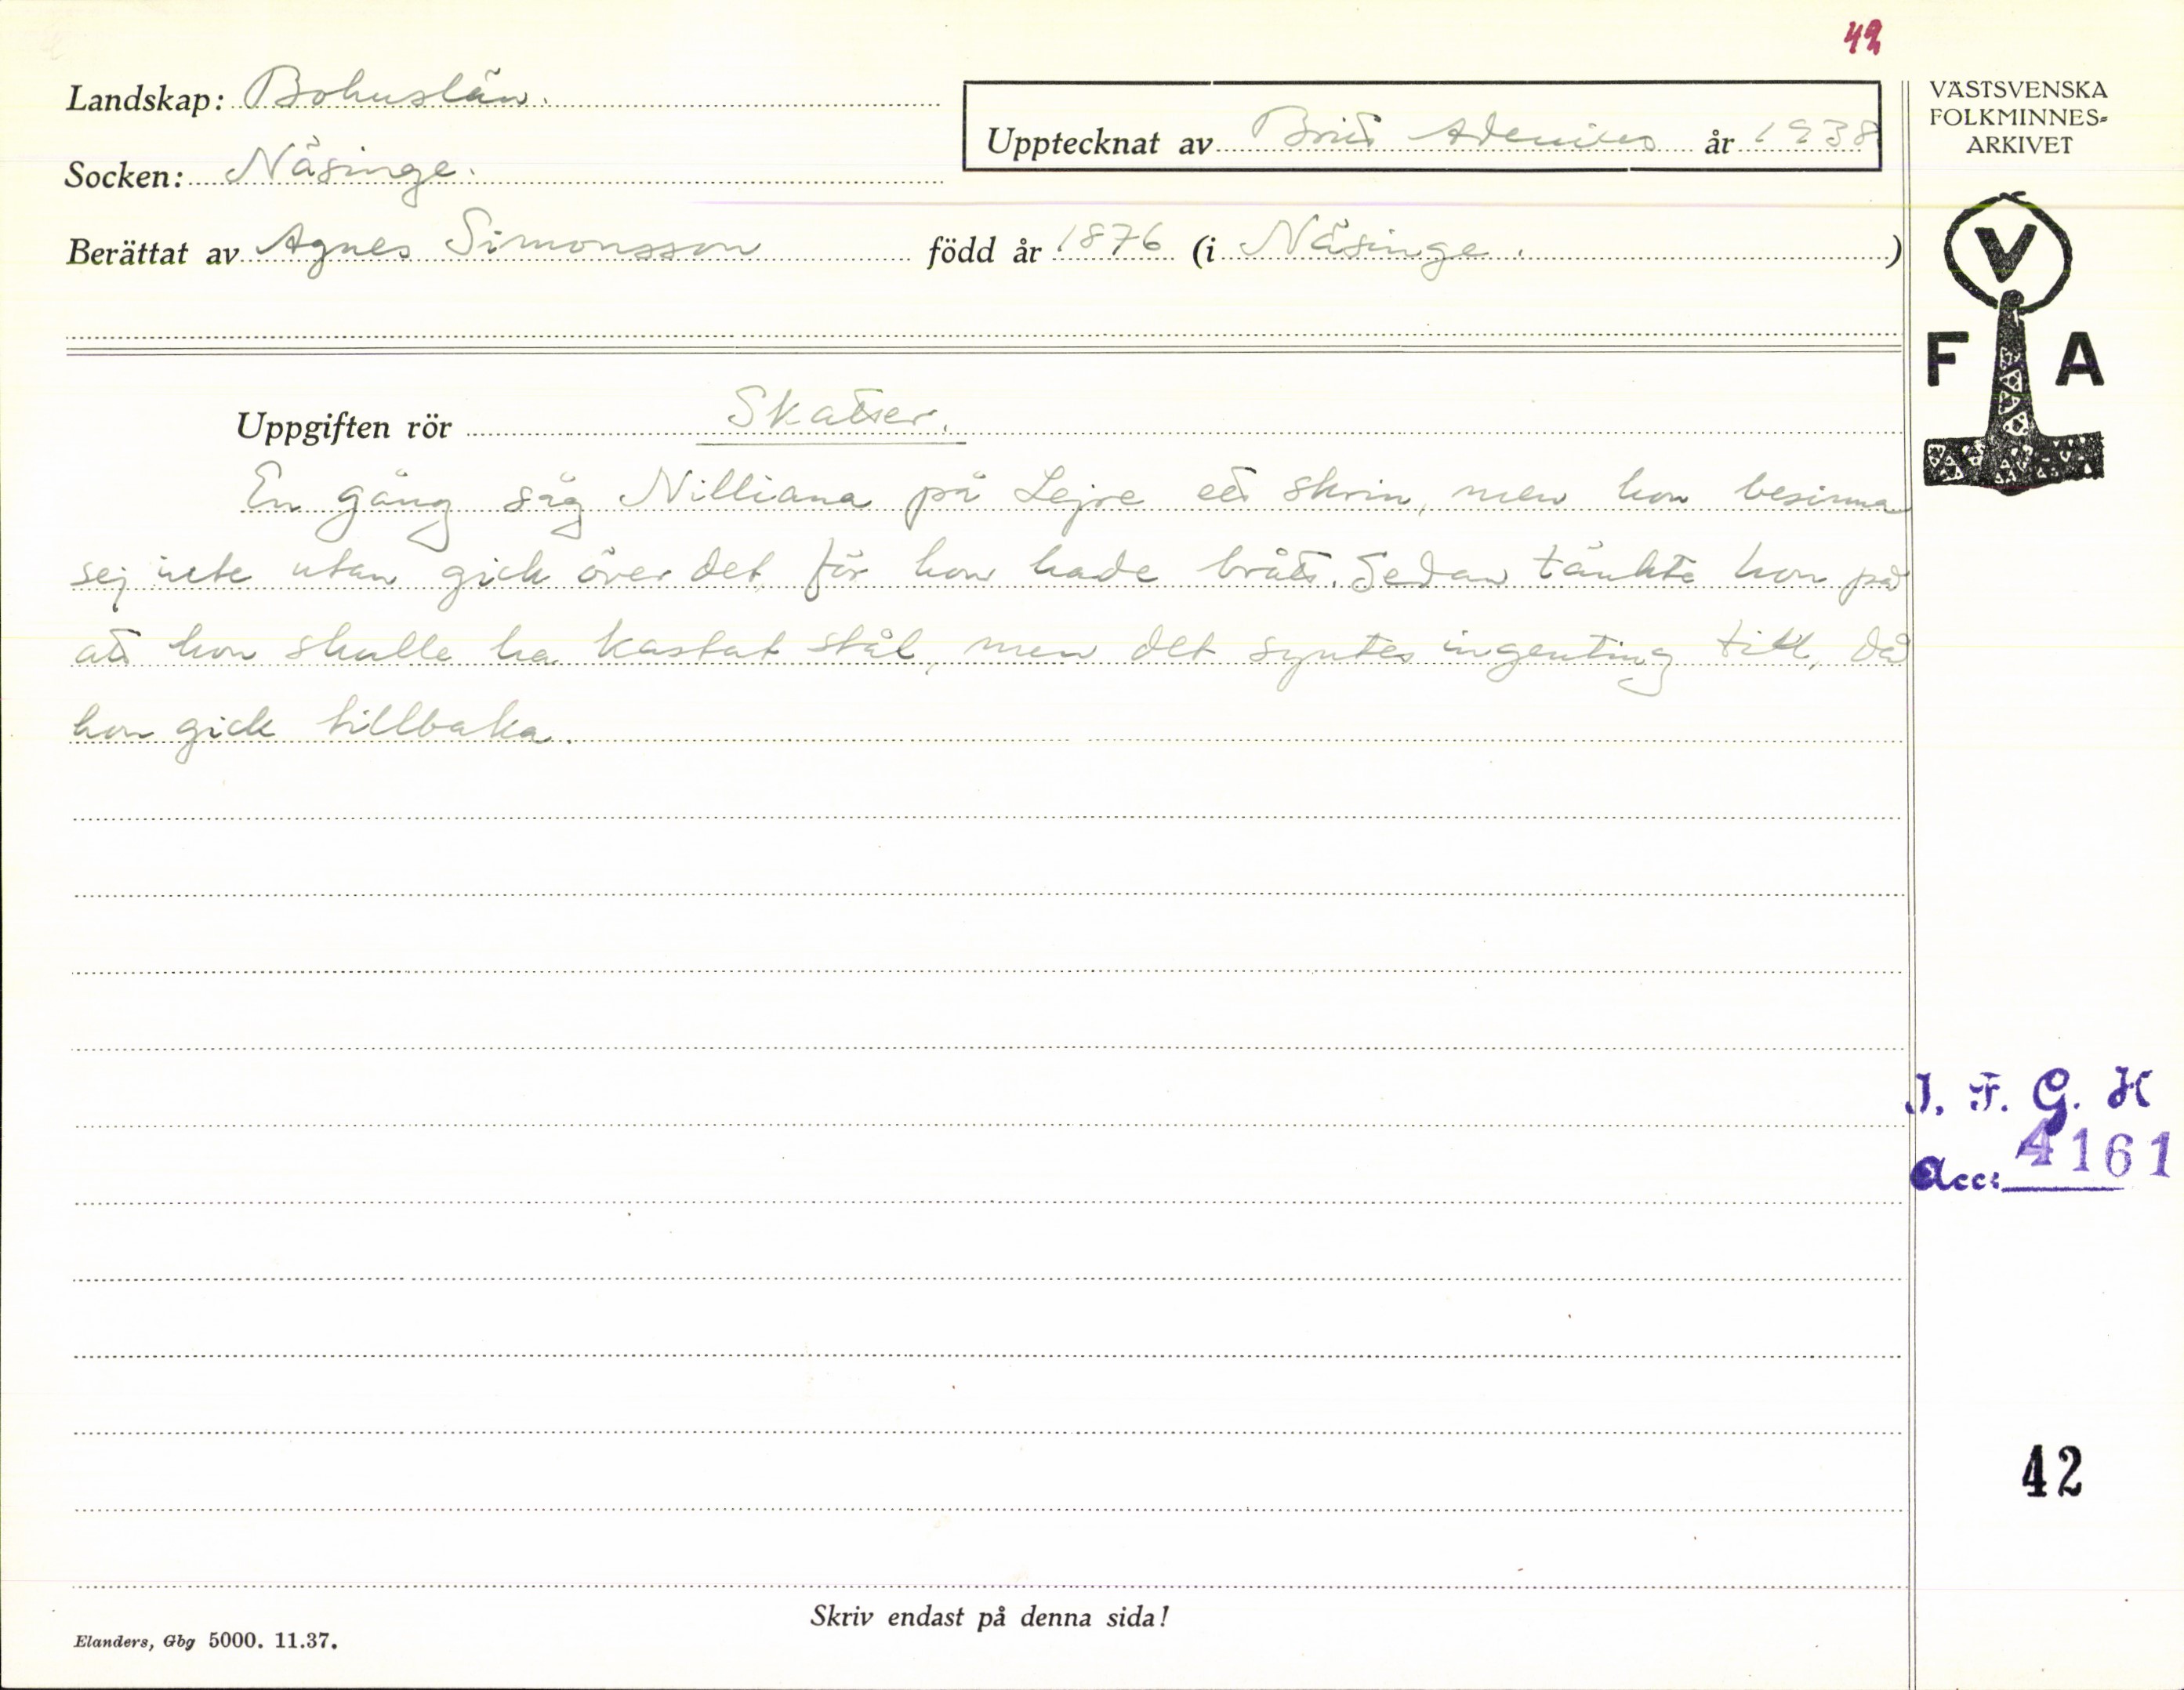 42
Landskap: Bohuslän.
Upptecknat av Brit Adenius år 1938
VÄSTSVENSKA
FOLKMINNES-
ARKIVET
Socken: Näsinge.
Berättat av Agnes Simonsson född år 1876 (i Näsinge.)
V
F A
Uppgiften rör Skatter.
En gång såg Nilliana på Lejre ett skrin, men hon besinna
sej inte utan gick över det för hon hade brått. Sedan tänkte hon på
att hon skulle ha kastat stål, men det syntes ingenting till, då
hon gick tillbaka.
I. F. G. H
Acc: 4161
42
Skriv endast på denna sida!
Elanders, Gbg 5000. 11.37.